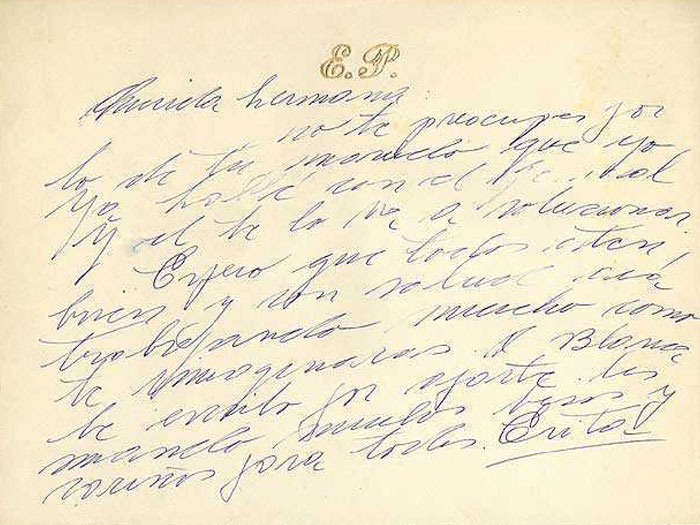 E.P.
Querida hermana:
no te preocupes por
lo de tu marido que yo
ya hablé con el
y el te lo va a solucionar.
Espero que todos esten
bien y con salud acá
trabajando mucho como
te imaginaras. A Blanca
le escribo por aparte. les
mando muchos besos y
cariños para todos. Evita